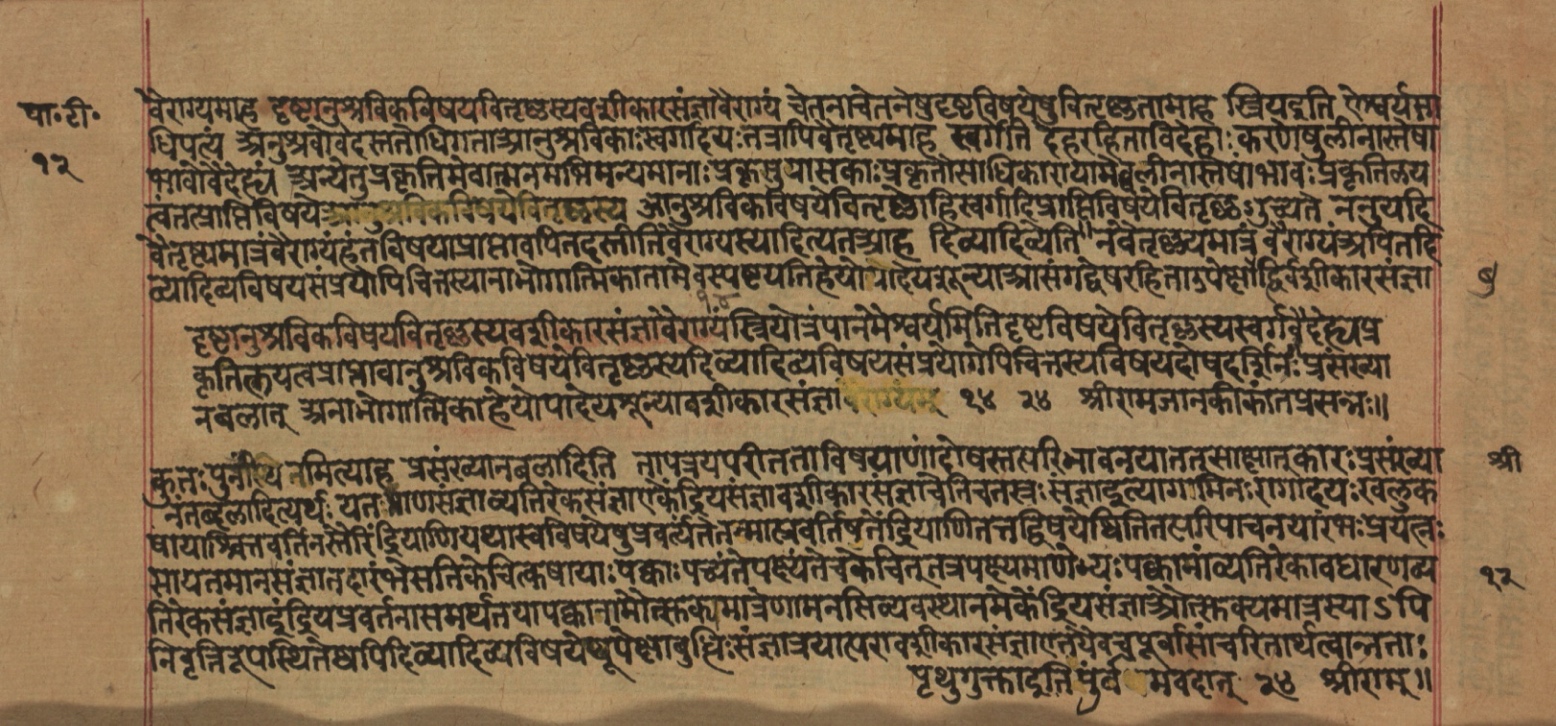 पा॰टी॰
१२
वैराग्यमाह दृष्टानुश्रविकविषयवितृष्णस्यवशीकारसंज्ञावैराग्यं चेतनाचेतनेषुदृष्टविषयेषुवितृष्णतामाह स्त्रियइति ऐश्वर्यमा
धिपत्यं अनुश्रवोवेदस्ततोधिगताआनुश्रविकाःस्वर्गादयःतत्रापिवैतृष्ण्यमाह स्वर्गेति देहरहिताविदेहाःकरणेषुलीनास्तेषां
भावोवैदेह्यं अन्येतुप्रकृतिमेवात्मनमभिमन्यमानाःप्रकृत्युपासकाःप्रकृतौसाधिकारायामेवलीनास्तेषांभावःप्रकृतिलय
त्वंतत्प्राप्तिविषयेआनुश्रविकविषयेवितृष्णस्य आनुश्रविकविषयेवितृष्णोहिस्वर्गादिप्राप्तिविषयेवितृष्णउच्यते ननुयदि
वैतृष्ण्यमात्रंवैराग्यंहंतविषयाप्राप्तावपितदस्तीतिवैराग्यंस्यादित्यतआह दिव्यादिव्येति नवैतृष्ण्यमात्रं वैराग्यंअपितुदि
व्यादिव्यविषयसंप्रयोपिचित्तस्यानाभोगात्मिकातामेवस्पष्टयतिहेयोपादेयशून्याआसंगद्वेषरहिताउपेक्षाबुद्धिर्वशीकारसंज्ञा
दृष्टानुश्रविकविषयवितृष्णस्यवशीकारसंज्ञावैराग्यं१५स्त्रियोन्नंपानमैश्वर्यमितिदृष्टविषयेवितृष्णस्यस्वर्गवैदेह्यप्र
कृतिलयत्वप्राप्तावानुश्रविकविषयेवितृष्णस्यदिव्यादिव्यविषयसंप्रयोगेपिचित्तस्यविषयदोषदर्शिनःप्रसंख्या
नबलात् अनाभोगात्मिकाहेयोपादेयशून्यावशीकारसंज्ञावैराग्यम् १५ २४ श्रीरामजानकीकांतप्रसन्नः॥
कुतःपुनरियमित्याह प्रसंख्यानबलादिति तापत्रयपरीतताविषयाणांदोषस्तत्परिभावनयातत्साक्षात्कारःप्रसंख्या
नंतद्बलादित्यर्थः यतमानसंज्ञाव्यतिरेकसंज्ञाएकेंद्रियसंज्ञावशीकारसंज्ञाचेतिचतस्रःसंज्ञाइत्यागमिनःरागादयःखलुक
षायाश्चित्तवर्तिनस्तैरिंद्रियाणियथास्वंविषयेषुप्रवर्त्यंतेतन्माप्रवर्तिषतेंद्रियाणितत्तद्विषयेष्वितितत्परिपाचनयारंभःप्रयत्नः
सायतमानसंज्ञातदारंभेसतिकेचित्कषायाःपक्वाःपच्यंतेपक्ष्यंतेचकेचित्तत्रपक्ष्यमाणेभ्यःपक्वानांव्यतिरेकावधारणंव्य
तिरेकसंज्ञाइंद्रियप्रवर्तनासमर्थतयापक्वानामौत्सुक्यमात्रेणमनसिव्यवस्थानमेकेंद्रियसंज्ञाऔत्सुक्यमात्रस्याऽपि
निवृत्तिरूपस्थितेष्वपिदिव्यादिव्यविषयेषूपेक्षाबुद्धिःसंज्ञात्रयात्परावशीकारसंज्ञाएतयैवचपूर्वासांचरितार्थत्वान्नताः
पृथगुक्ताइति सर्वमवदातं २४ श्रीराम॥
श्री
१२